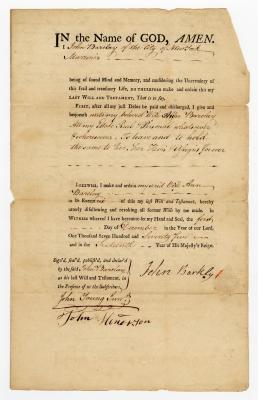 IN the Name of GOD, AMEN.
I John Barclay of the City of New York
Marriner
being of sound Mind and Memory, and considering the Uncertainty of
this frail and transitory Life, DO THEREFORE make and ordain this my
LAST WILL AND TESTAMENT, That is to say,
FIRST, after all my just Debts be paid and discharged, I give and
bequeath unto my beloved Wife Ann Barclay
All my Estate Real & Personal whatsoever
& wheresoever. To have and to hold
the same to her, her Heirs & Assigns forever
LIKEWISE, I make and ordain my said Wife Ann
Barclay
to be Executrix of this my last Will and Testament, hereby
utterly disallowing and revoking all former Wills by me made. In
WITNESS whereof I have hereunto set my Hand and Seal, the first
Day of December in the Year of our Lord,
One Thousand Seven Hundred and Seventy five
and in the Sixteenth Year of His Majesty's Reign.
Sign'd, seal'd, publish'd, and deliver'd
by the said John Barclay
as his last Will and Testament, in
the Presence of us the Subscribers,
John Barkly
John Young Junr
John Henerson